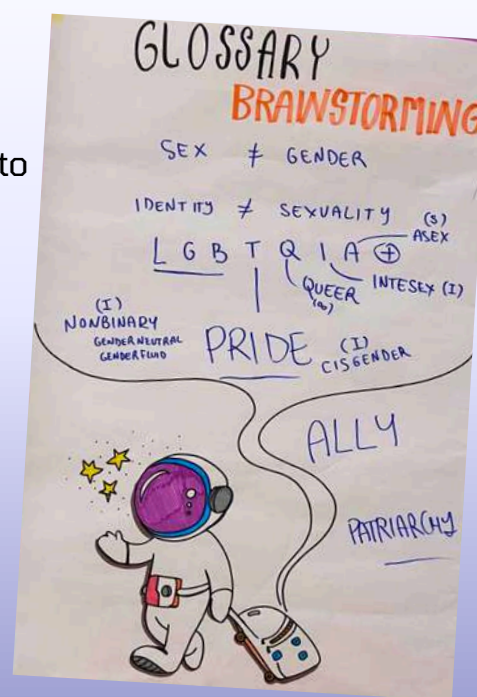 to
GLOSSARY
BRAINSTORMING
SEX ≠ GENDER
IDENTITY ≠ SEXUALITY (S)
ASEX
L G B T Q I A +
QUEER
(∞)
INTESEX (I)
(I)
NONBINARY
GENDER NEUTRAL
GENDERFLUID
PRIDE
(I)
CISGENDER
ALLY
PATRIARCHY